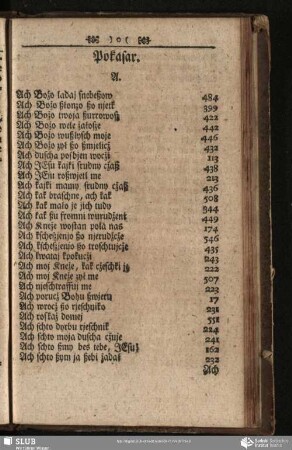 305
Pokasar.
A.
Ach Bozo ladaj snebeßow 484
Ach Bozo ßlonzo ßo njetk 399
Ach Bozo twoja ßurrowosü 422
Ach Bozo wele zalosze 442
Ach Bozo wußlysch moje 446
Ach Bozo zyl ßo 432
Ach duscha pojdzem woczi 113
Ach JEsu kajki strudny czaß 438
Ach JEsu roswjesl me 213
Ach kajki mamy strudny czaß 436
Ach kak wraschne, ach kak 508
Ach kak malo je jich tudy 344
Ach kak ßu fromni wurudzeni 449
Ach Kneze wostan pola nas 174
Ach kscheszijenjo ßo njerudzcze 546
Ach kscheszijenjo ßo troschtujcze 435
Ach kwataj kpokuczi 243
Ach moj Kneze, kak czeschki 222
Ach moj Kneze zyl me 507
Ach njeschtrassuj me 223
Ach porucz Bohu ßwjeru 17
Ach wrocz ßo rjeschniko 231
Ach roskaz domej 551
Ach schto dyrbu rjeschnik 224
Ach schto moja duscha czuje 241
Ach schto ßmy bes tebe, JEsu 162
Ach schto ßym ja ßebi zadal 232
Ach
SLUB